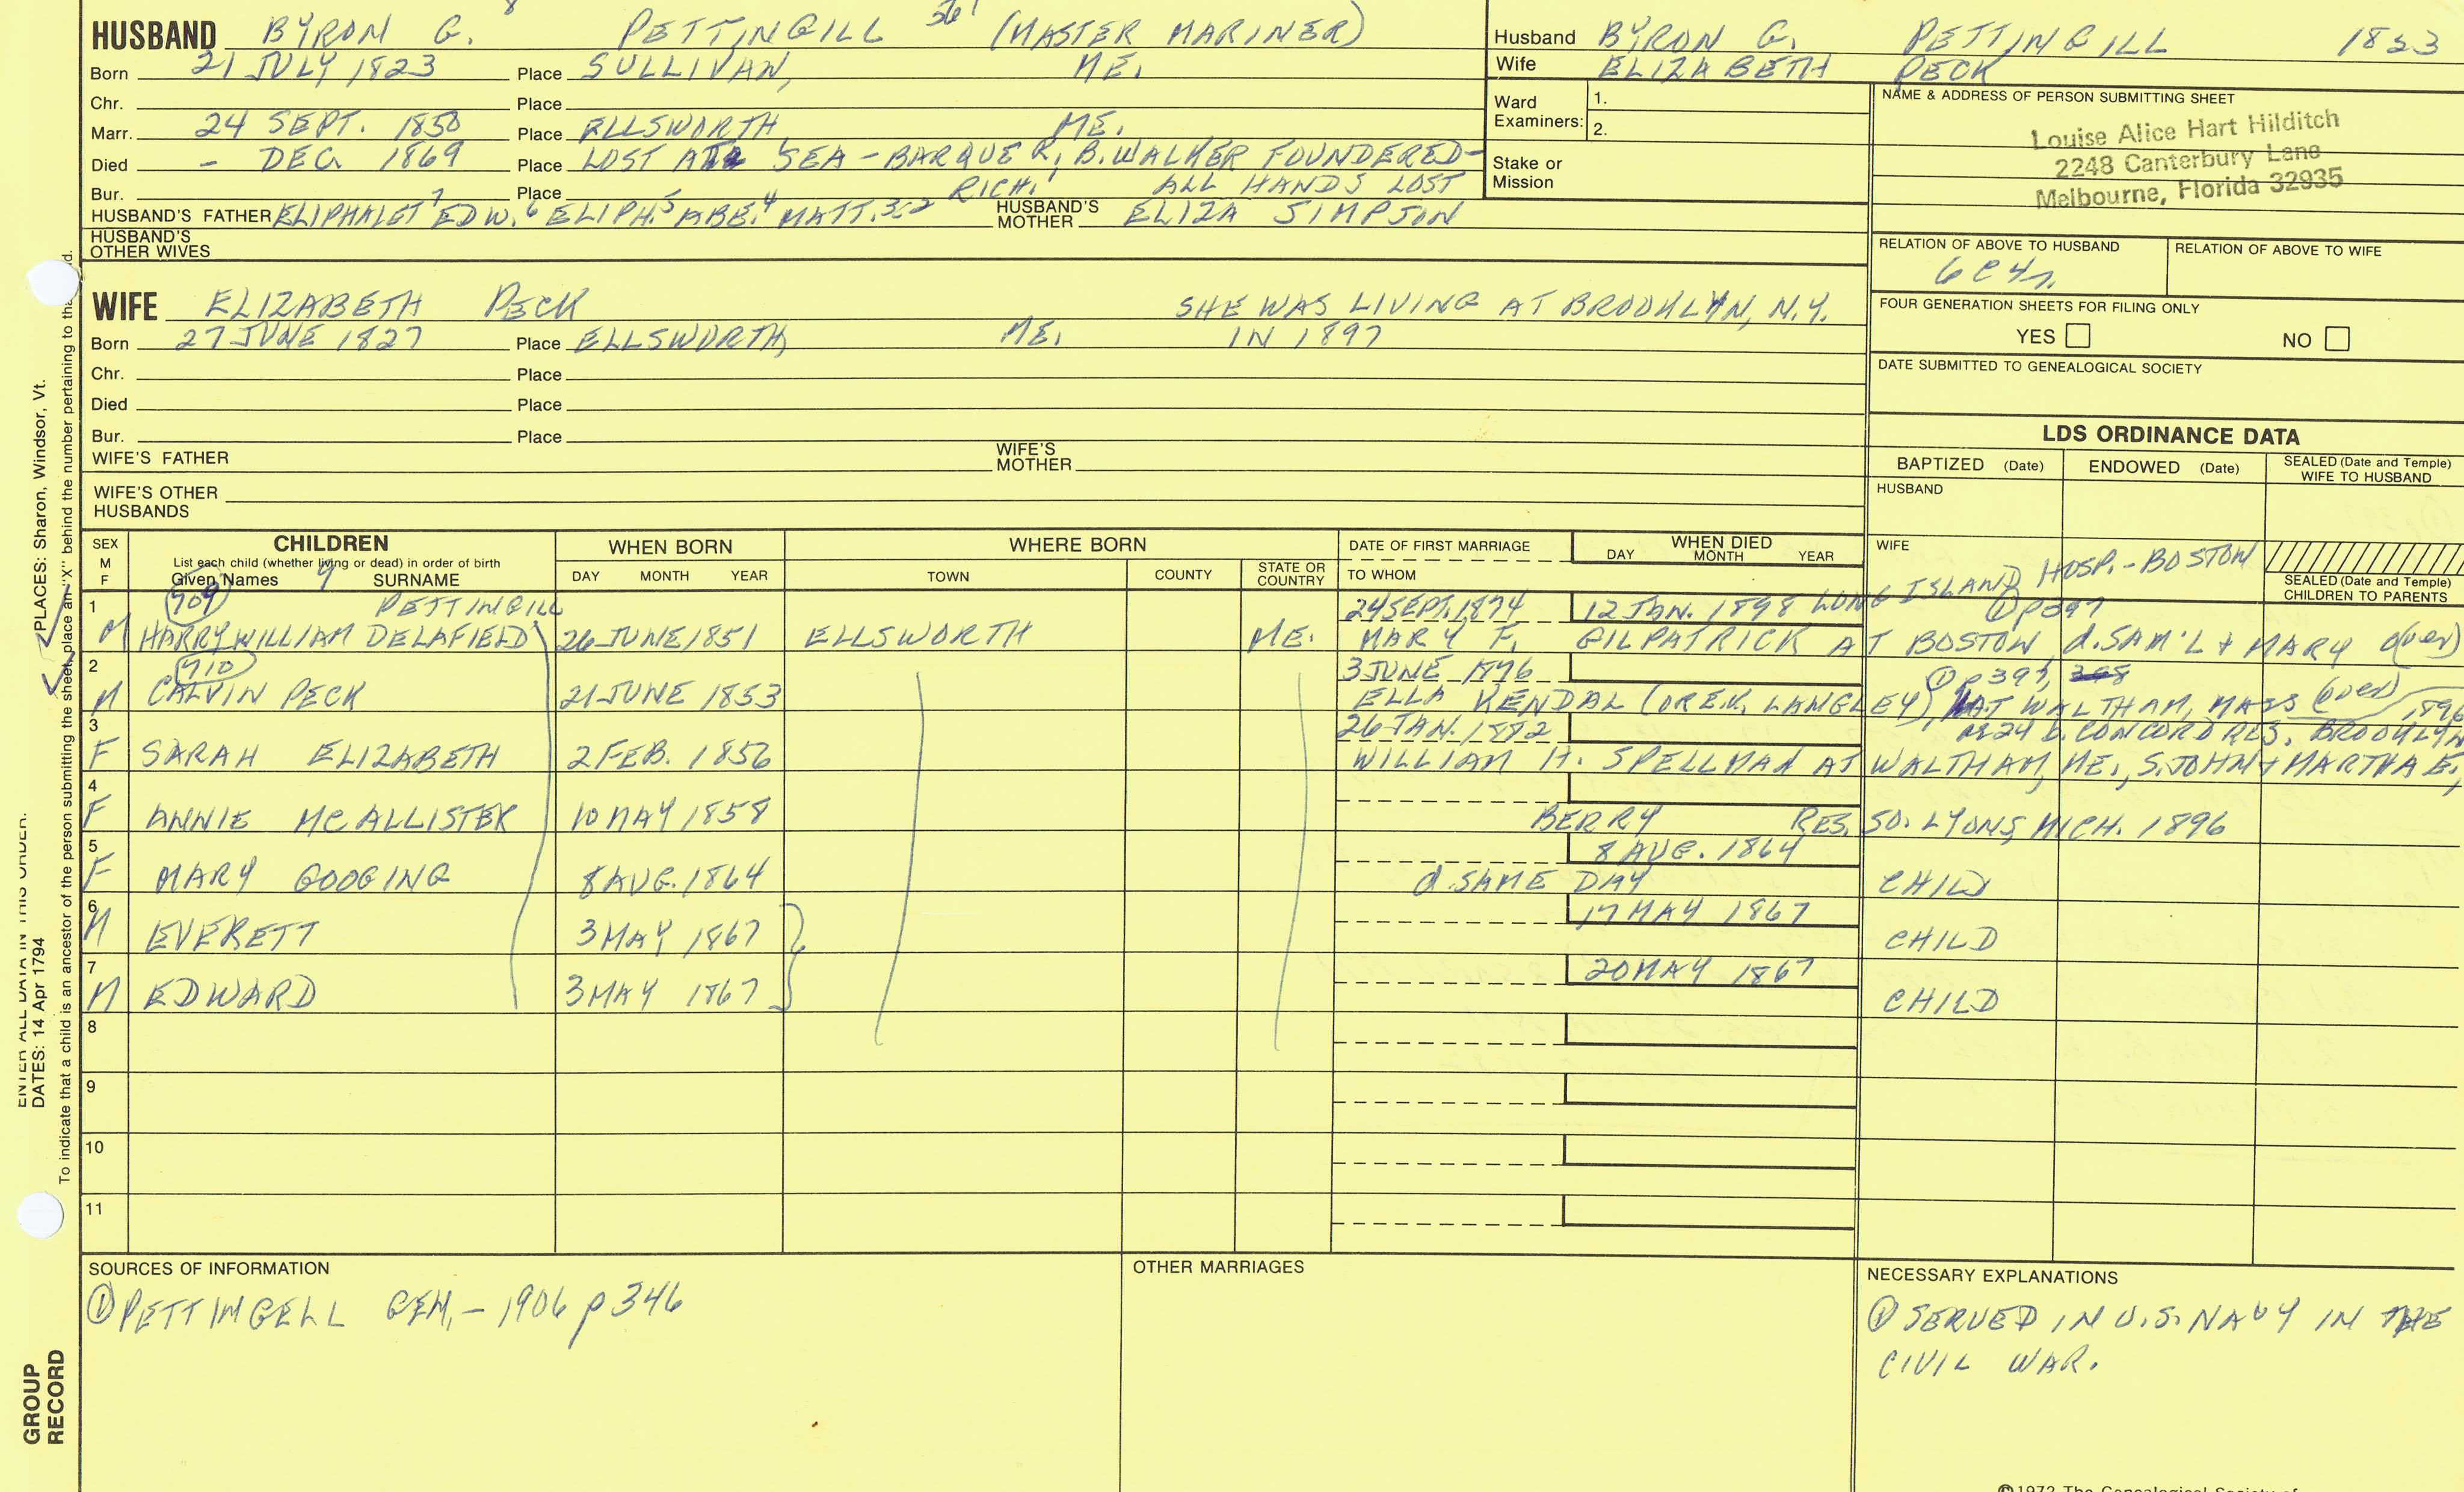 HUSBAND BYRON G. 8 PETTINGILL 561 (MASTER MARINER)
Born 21 JULY 1823 Place SULLIVAN, ME.
Chr. Place
Marr. 24 SEPT. 1850 Place ELLSWORTH, ME.
Died - DEC. 1869 Place LOST AT SEA - BARQUE R. B. WALKER FOUNDERED -
Bur. Place ALL HANDS LOST
RICH.1
HUSBAND'S FATHER ELIPHALET 7 EDW. 6 ELIPH. 5 ABE. 4 MATT. 3,2 HUSBAND'S MOTHER ELIZA SIMPSON
HUSBAND'S OTHER WIVES
Husband BYRON G. PETTINGILL 1823
Wife ELIZABETH PECK
Ward Examiners: 1.
2.
Stake or Mission
NAME & ADDRESS OF PERSON SUBMITTING SHEET
Louise Alice Hart Hilditch
2248 Canterbury Lane
Melbourne, Florida 32935
RELATION OF ABOVE TO HUSBAND RELATION OF ABOVE TO WIFE
6C4R
FOUR GENERATION SHEETS FOR FILING ONLY
YES NO
DATE SUBMITTED TO GENEALOGICAL SOCIETY
WIFE ELIZABETH PECK SHE WAS LIVING AT BROOKLYN, N.Y.
Born 27 JUNE 1827 Place ELLSWORTH, ME. IN 1897
Chr. Place
Died Place
Bur. Place
WIFE'S FATHER WIFE'S MOTHER
WIFE'S OTHER HUSBANDS
LDS ORDINANCE DATA
BAPTIZED (Date) ENDOWED (Date) SEALED (Date and Temple) WIFE TO HUSBAND
HUSBAND
WIFE
SEALED (Date and Temple) CHILDREN TO PARENTS
SEX M F
CHILDREN
List each child (whether living or dead) in order of birth
Given Names 9 SURNAME
WHEN BORN
DAY MONTH YEAR
WHERE BORN
TOWN COUNTY STATE OR COUNTRY
DATE OF FIRST MARRIAGE
TO WHOM
WHEN DIED
DAY MONTH YEAR
1 909 PETTINGILL 24 SEPT. 1874 12 JAN. 1898 LONG ISLAND HOSP. - BOSTON
① p397
M HARRY WILLIAM DELAFIELD 26 JUNE 1851 ELLSWORTH ME. MARY F. GILPATRICK AT BOSTON, d. SAM'L + MARY (over)
2 910 3 JUNE 1896 ① p397, 398
M CALVIN PECK 21 JUNE 1853 ELLA KENDAL (OR E.K. LANGLEY), AT WALTHAM, MASS (over)
3 26 JAN. 1882 CONCORD RES. BROOKLYN 1896
F SARAH ELIZABETH 2 FEB. 1856 WILLIAM H. SPELLMAN AT WALTHAM, ME., S. JOHN + MARTHA E.,
4
F ANNIE MCALLISTER 10 MAY 1858 BERRY RES. SO. LYONS, MICH. 1896
5 8 AUG. 1864
F MARY GOOGING 8 AUG. 1864 d. SAME DAY CHILD
6 17 MAY 1867
M EVERETT 3 MAY 1867 CHILD
7 20 MAY 1867
M EDWARD 3 MAY 1867 CHILD
8
9
10
11
SOURCES OF INFORMATION
① PETTINGELL GEN. - 1906 p 346
OTHER MARRIAGES
NECESSARY EXPLANATIONS
① SERVED IN U.S. NAVY IN THE
CIVIL WAR.
©1972 The Genealogical Society of
ENTER ALL DATA IN THIS ORDER:
DATES: 14 Apr 1794
PLACES: Sharon, Windsor, Vt.
To indicate that a child is an ancestor of the person submitting the sheet, place an "X" behind the number pertaining to that
GROUP
RECORD